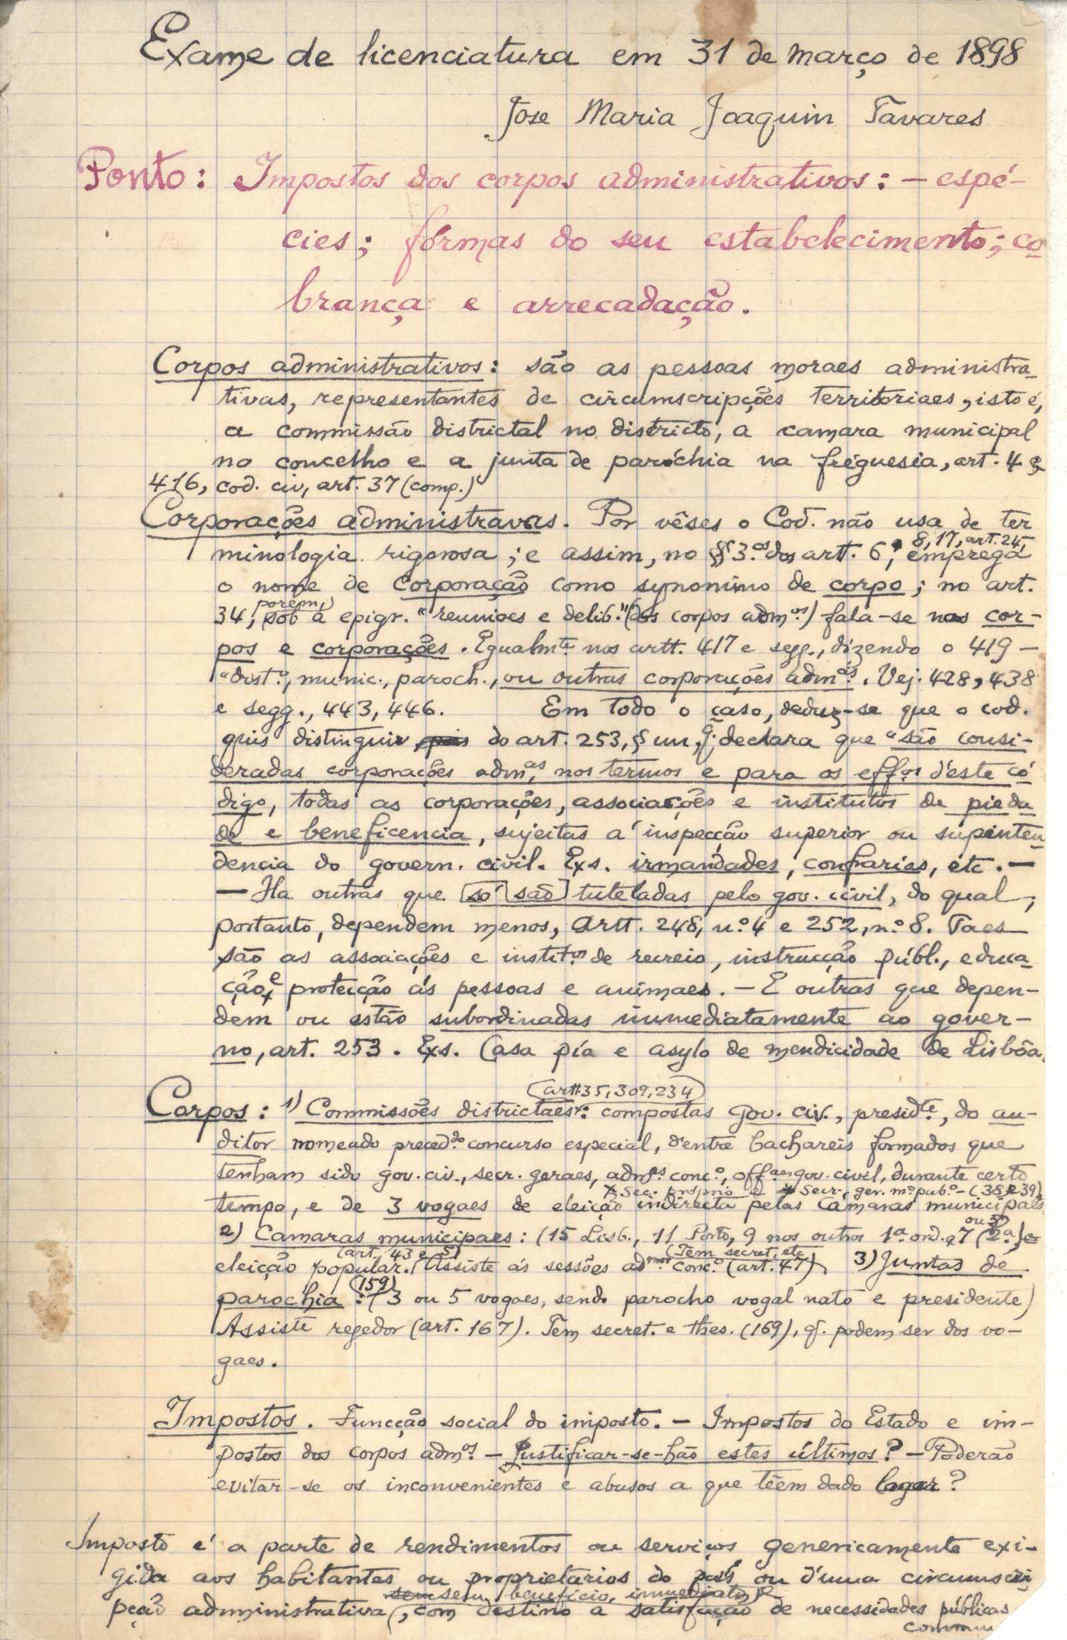 Exame de licenciatura em 31 de março de 1898
Jose Maria Joaquin Tavares
Ponto: Impostos dos corpos administrativos: — espé-
cies; fórmas do seu estabelecimento; co
brança e arrecadação.
Corpos administrativos: são as pessoas moraes administra-
tivas, representantes de circumscripções territoriaes, isto é,
a commissão districtal no districto, a camara municipal
no concelho e a junta de paróchia na fréguesia, art. 4 e
416, cod. civ, art. 37 (comp.)
Corporações administravas. Por vêses o Cod. não usa de ter
8, 17, art. 245
minologia rigorosa; e assim, no §§ 3.os dos artt. 6, emprega
o nome de corporação como synonimo de corpo; no art.
porém,
34, sob a epigr. "reuniões e delib." (dos corpos adm.os) fala-se nos cor-
pos e corporações. Egualmte nos artt. 417 e segg., dizendo o 419 —
"dist.o, munic., paroch., ou outras corporações admas. Vej. 428, 438
e segg., 443, 446. Em todo o caso, deduz-se que o cod.
quis distinguir pois do art. 253, § un, q. declara que "são consi-
deradas corporações admas, nos termos e para os effos d'este có
digo, todas as corporações, associações e institutos de pieda
de e beneficencia, sujeitas a' inspecção superior ou supinten
dencia do govern. civil. Exs. irmandades, confrarias, etc. —
— Ha outras que só são tuteladas pelo gov. civil, do qual,
portanto, dependem menos, artt. 248, n.o 4 e 252, n.o 8. Taes
são as associações e instit.os de recreio, instrucção públ., educa-
ção, e proteição ás pessoas e animaes. — E outras que depen-
dem ou estão subordinadas immediatamente ao gover-
no, art. 253. Exs. Casa pía e asylo de mendicidade de Lisbôa.
(artt 35, 309, 234)
Corpos: 1) Commissões districtaes: compostas gov. civ., presidte, do au-
ditor nomeado preced.do concurso especial, d'entre bachareis formados que
tenham sido gov. civ., secr. geraes, adm.es conc.o, off.aes gov. civil, durante certo
Secr. ger. m.o pub.o — (38 e 39)
tempo, e de 3 vogaes de eleição indirecta pelas camaras municipaes
ou 5
2) Camaras municipaes: (15 Lisb., 11 Porto, 9 nos outros 1.a ord. e 7 (2.a) e
(art. 43 e 5) (Tem secret. etc
eleição popular. Assiste ás sessões ad.or conc.o (art. 47) 3) Juntas de
(159)
parochia: (3 ou 5 vogaes, sendo parocho vogal nato e presidente)
Assiste regedor (art. 167). Tem secret. e thes. (169), q. podem ser dos vo-
gaes.
Impostos. Funcção social do imposto. — Impostos do Estado e im-
postos dos corpos adm.os — Justificar-se-hão estes últimos? — Poderão
evitar-se os inconvenientes e abusos a que têem dado lugar?
Imposto é a parte de rendimentos ou serviços genericamente exi-
gida aos habitantes ou proprietarios do país ou d'uma circumscri
sem beneficio immediato
pção administrativa, com destino a satisfação de necessidades públicas
commu